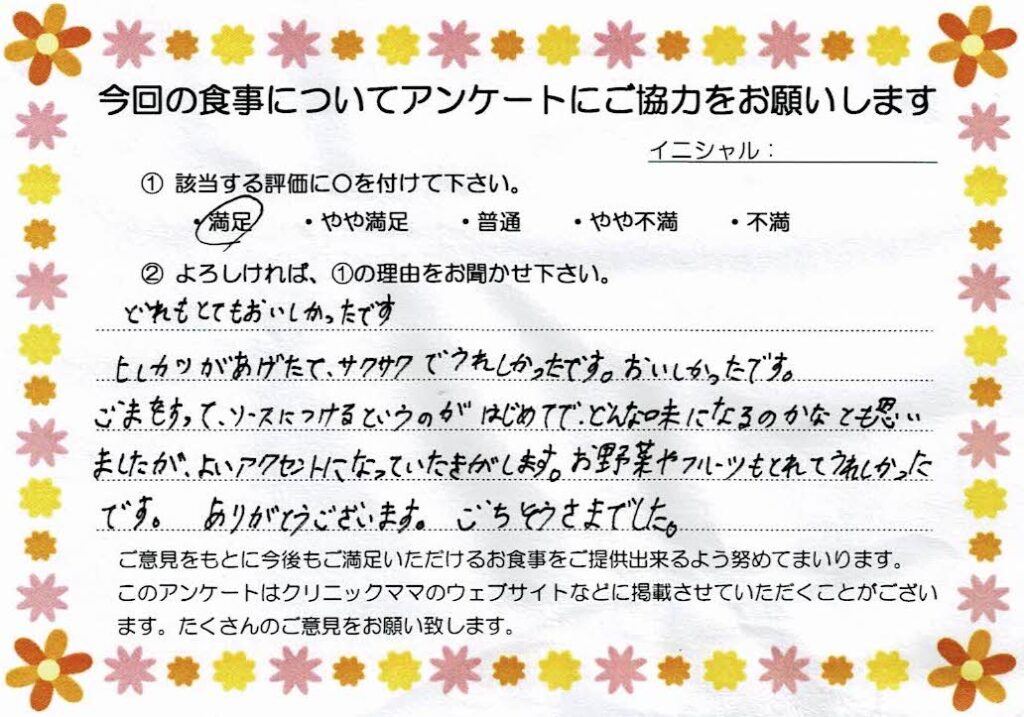 今回の食事についてアンケートにご協力をお願いします
イニシャル：
① 該当する評価に〇を付けて下さい。
・満足 ・やや満足 ・普通 ・やや不満 ・不満
② よろしければ、①の理由をお聞かせ下さい。
どれもとてもおいしかったです
ヒレカツがあげたて、サクサクでうれしかったです。おいしかったです。
ごまをすって、ソースにつけるというのがはじめてで、どんな味になるのかなとも思い
ましたが、よいアクセントになっていたきがします。お野菜やフルーツもとれてうれしかった
です。 ありがとうございます。 ごちそうさまでした。
ご意見をもとに今後もご満足いただけるお食事をご提供出来るよう努めてまいります。
このアンケートはクリニックママのウェブサイトなどに掲載させていただくことがござい
ます。たくさんのご意見をお願い致します。